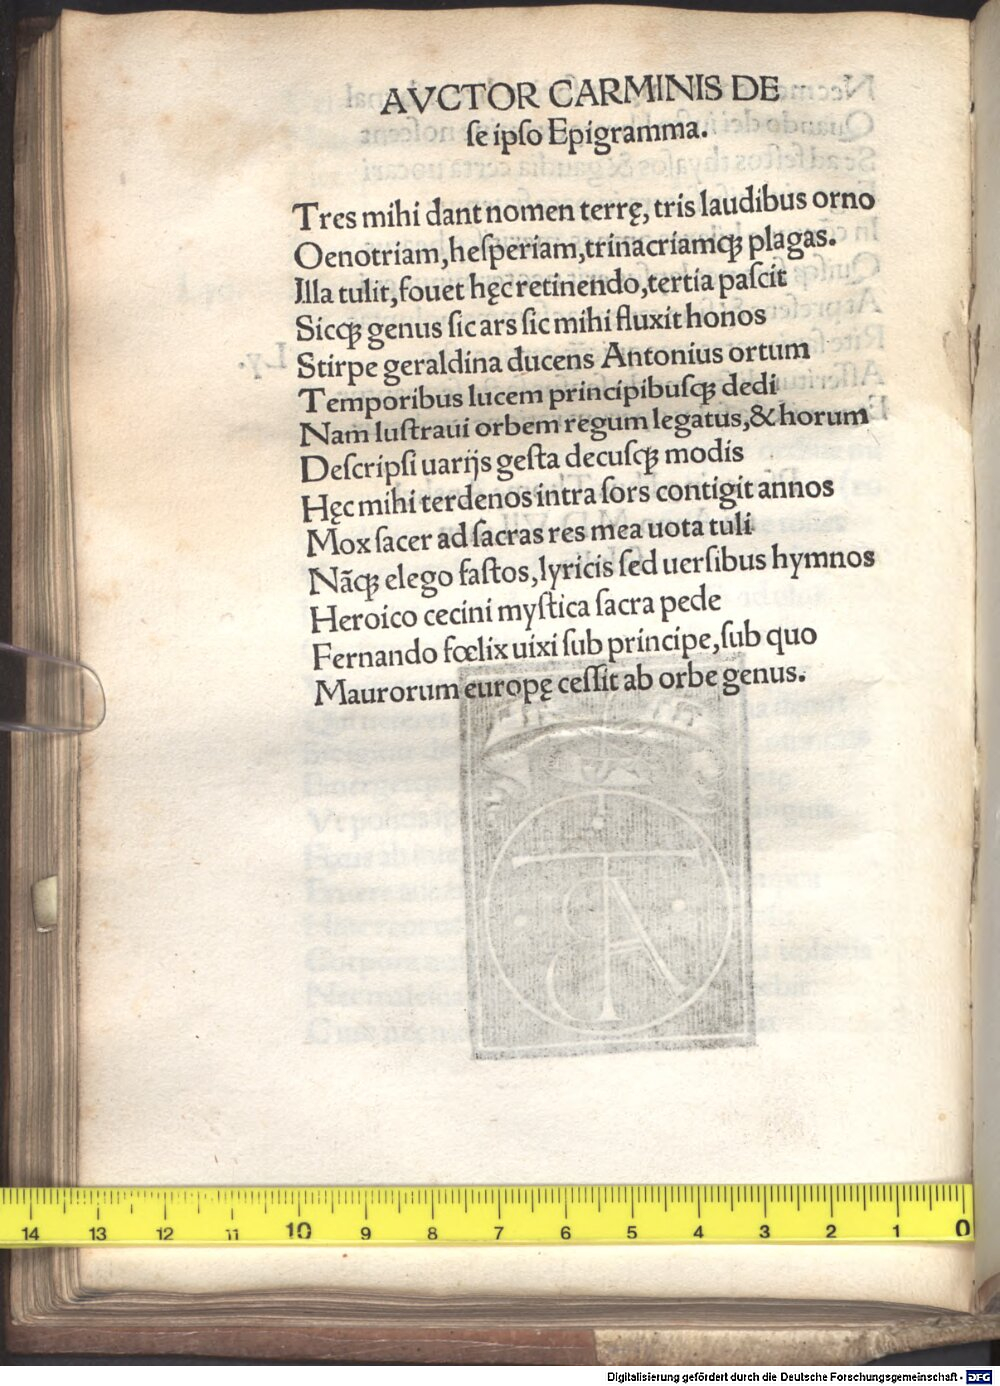 AVCTOR CARMINIS DE
ſe ipſo Epigramma.
Tres mihi dant nomen terrę, tris laudibus orno
Oenotriam, heſperiam, trinacriamqꝫ plagas.
Illa tulit, fouet hęc retinendo, tertia paſcit
Sicqꝫ genus ſic ars ſic mihi fluxit honos
Stirpe geraldina ducens Antonius ortum
Temporibus lucem principibuſqꝫ dedi
Nam luſtraui orbem regum legatus, & horum
Deſcripſi uarijs geſta decuſqꝫ modis
Hęc mihi terdenos intra ſors contigit annos
Mox ſacer ad ſacras res mea uota tuli
Nāqꝫ elego faſtos, lyricis ſed uerſibus hymnos
Heroico cecini myſtica ſacra pede
Fernando fœlix uixi ſub principe, ſub quo
Maurorum europę ceſſit ab orbe genus.
14 13 12 11 10 9 8 7 6 5 4 3 2 1 0
Digitalisierung gefördert durch die Deutsche Forschungsgemeinschaft - DFG